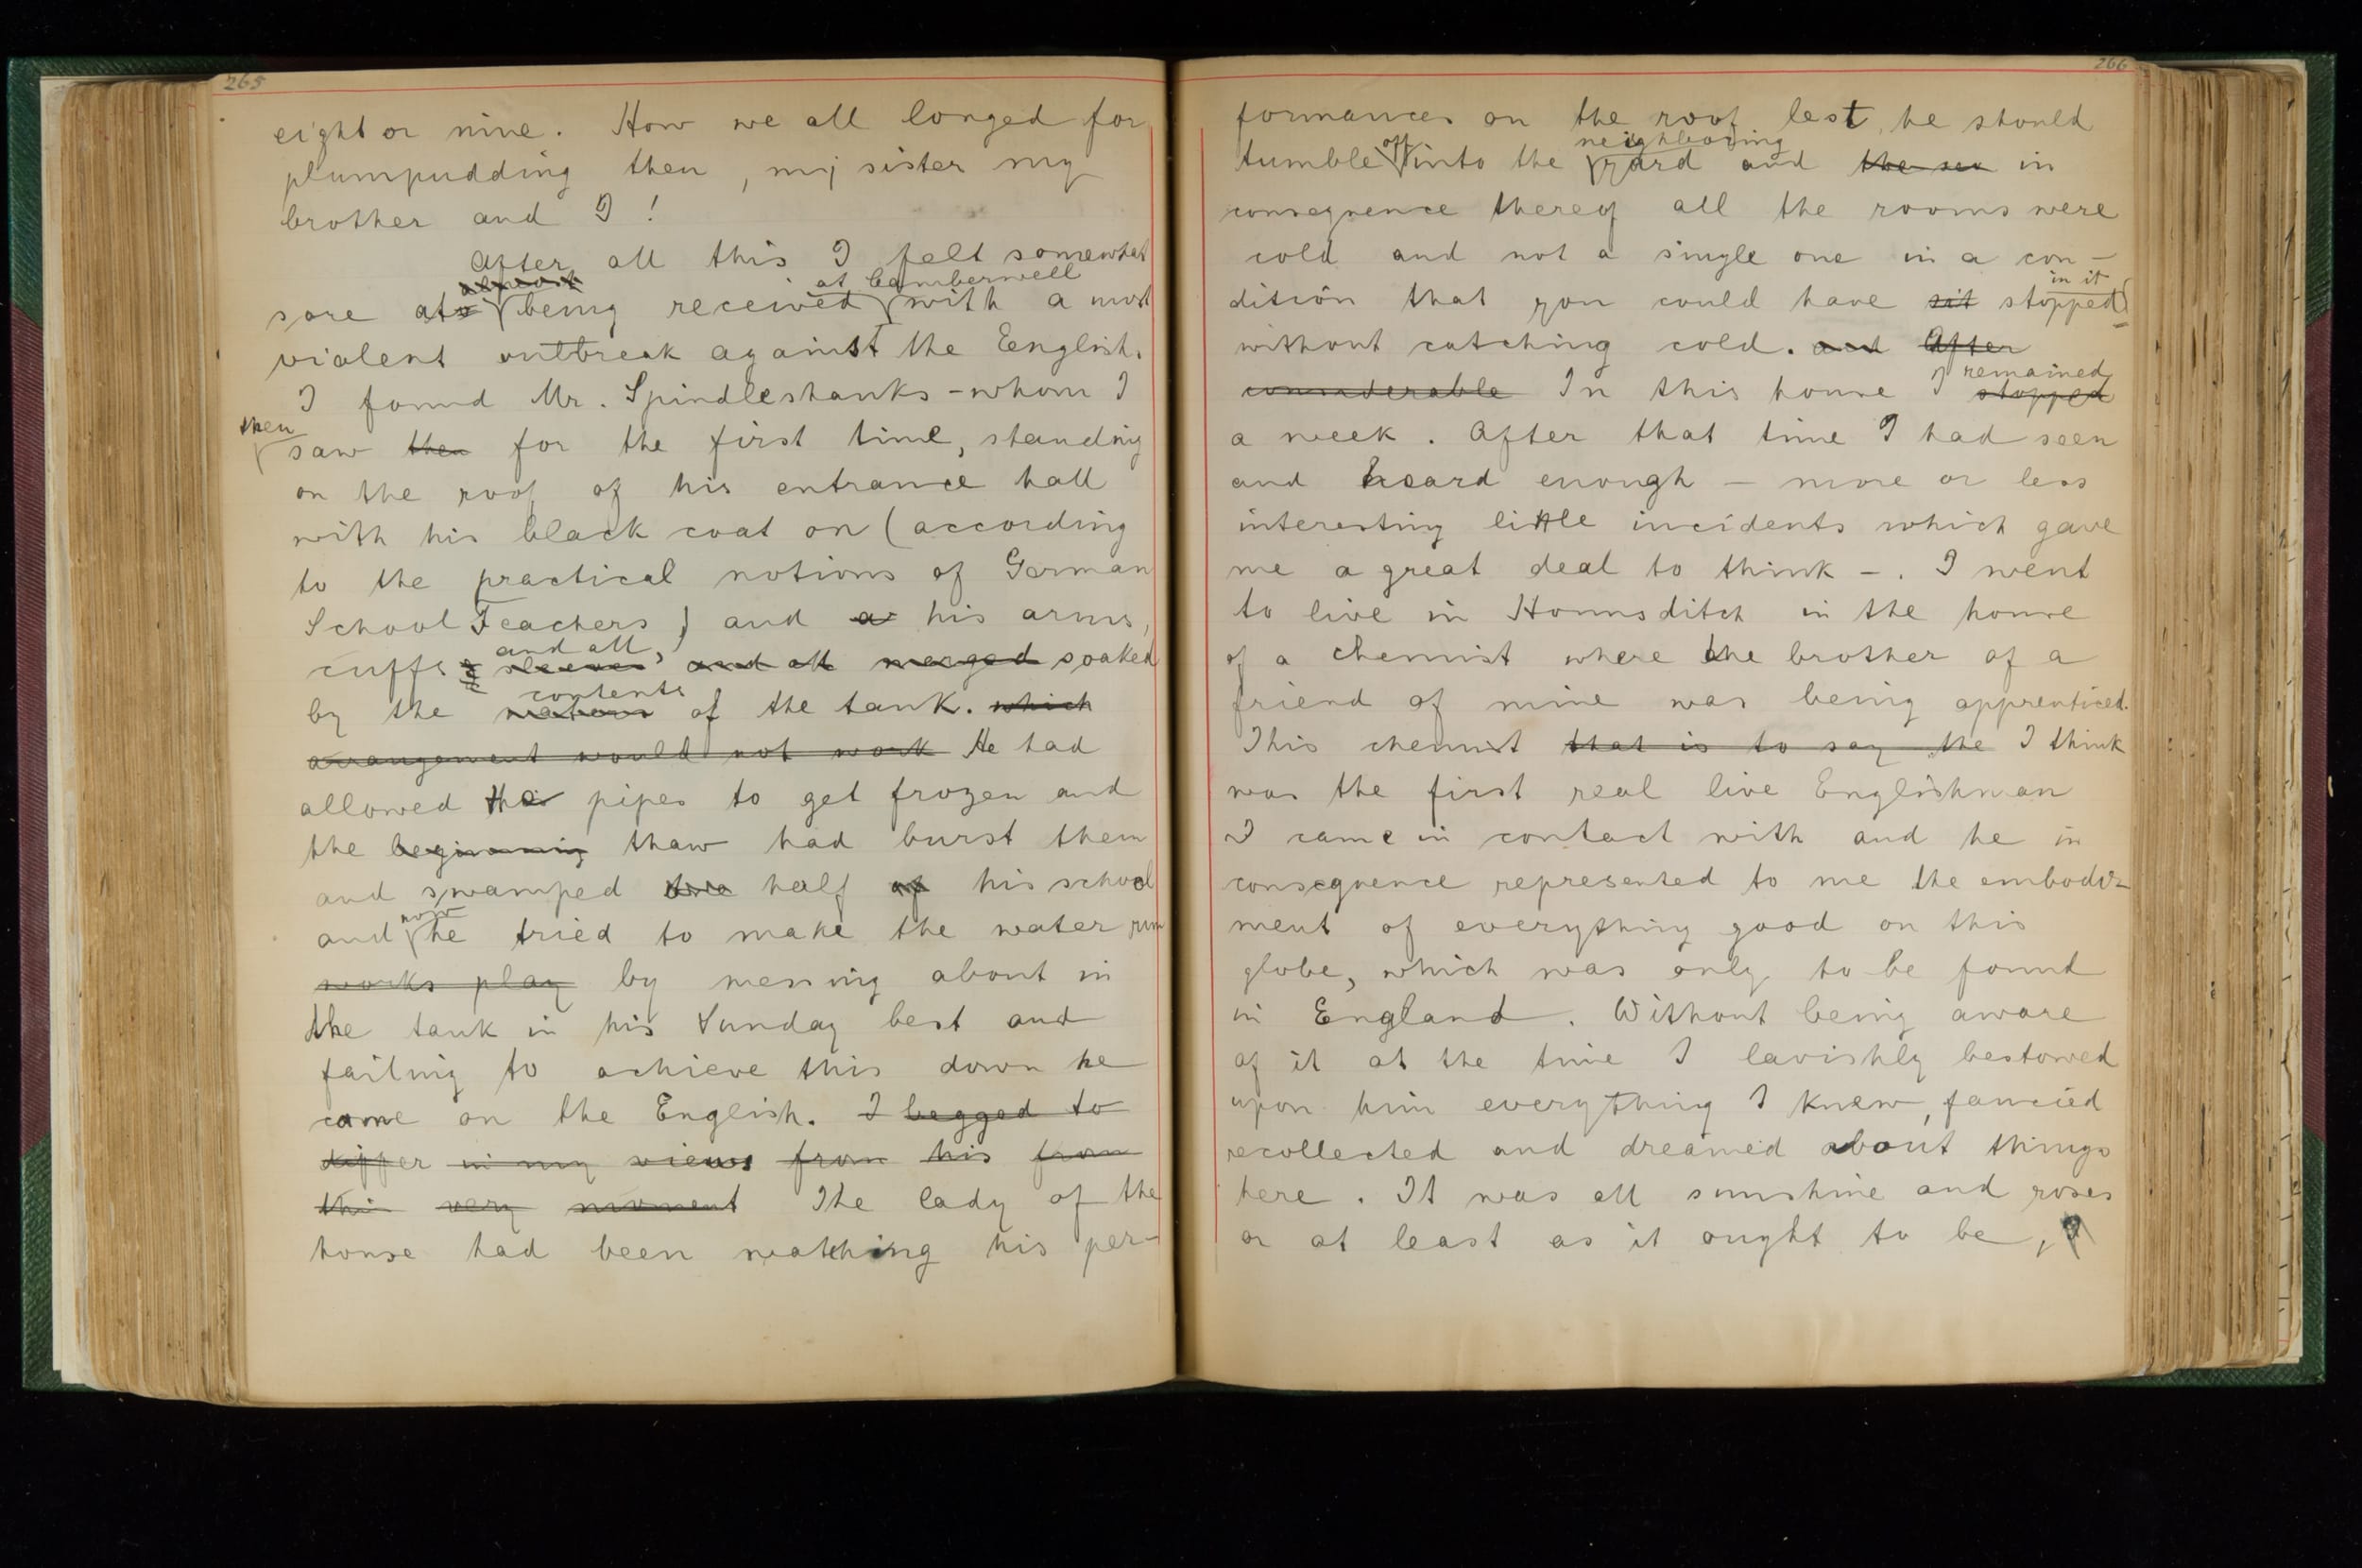 265
eight or nine. How we all longed for
plumpudding then, my sister my
brother and I!
After all this I felt somewhat
almost at Camberwell
sore at being received with a most
violent outbreak against the English.
I found Mr. Spindleshanks - whom I
then
saw then for the first time, standing
on the roof of his entrance hall
with his black coat on (according
to the practical notions of German
School Teachers) and a his arms,
and all,
cuffs & sleeves and all merged soaked
contents
by the waters of the tank. which
arrangement would not work He had
allowed the pipes to get frozen and
the beginning thaw had burst them
and swamped half of his school
now
and he tried to make the water run
works play by messing about in
the tank in his Sunday best and
failing to achieve this down he
came on the English. I begged to
differ in my views from his from
this very moment The lady of the
house had been watching his per-
266
formances on the roof lest he should
off neighbouring
tumble into the yard and the sea in
consequence thereof all the rooms were
cold and not a single one in a con-
in it
dition that you could have sit stopped
without catching cold. and After
remained
considerable In this house I stopped
a week. After that time I had seen
and heard enough - more or less
interesting little incidents which gave
me a great deal to think -. I went
to live in Hounsditch in the house
of a chemist where the brother of a
friend of mine was being apprenticed.
This chemist that is to say the I think
was the first real live Englishman
I came in contact with and he in
consequence represented to me the embodi-
ment of everything good on this
globe, which was only to be found
in England. Without being aware
of it at the time I lavishly bestowed
upon him everything I knew, fancied
recollected and dreamed about things
here. It was all sunshine and roses
or at least as it ought to be,